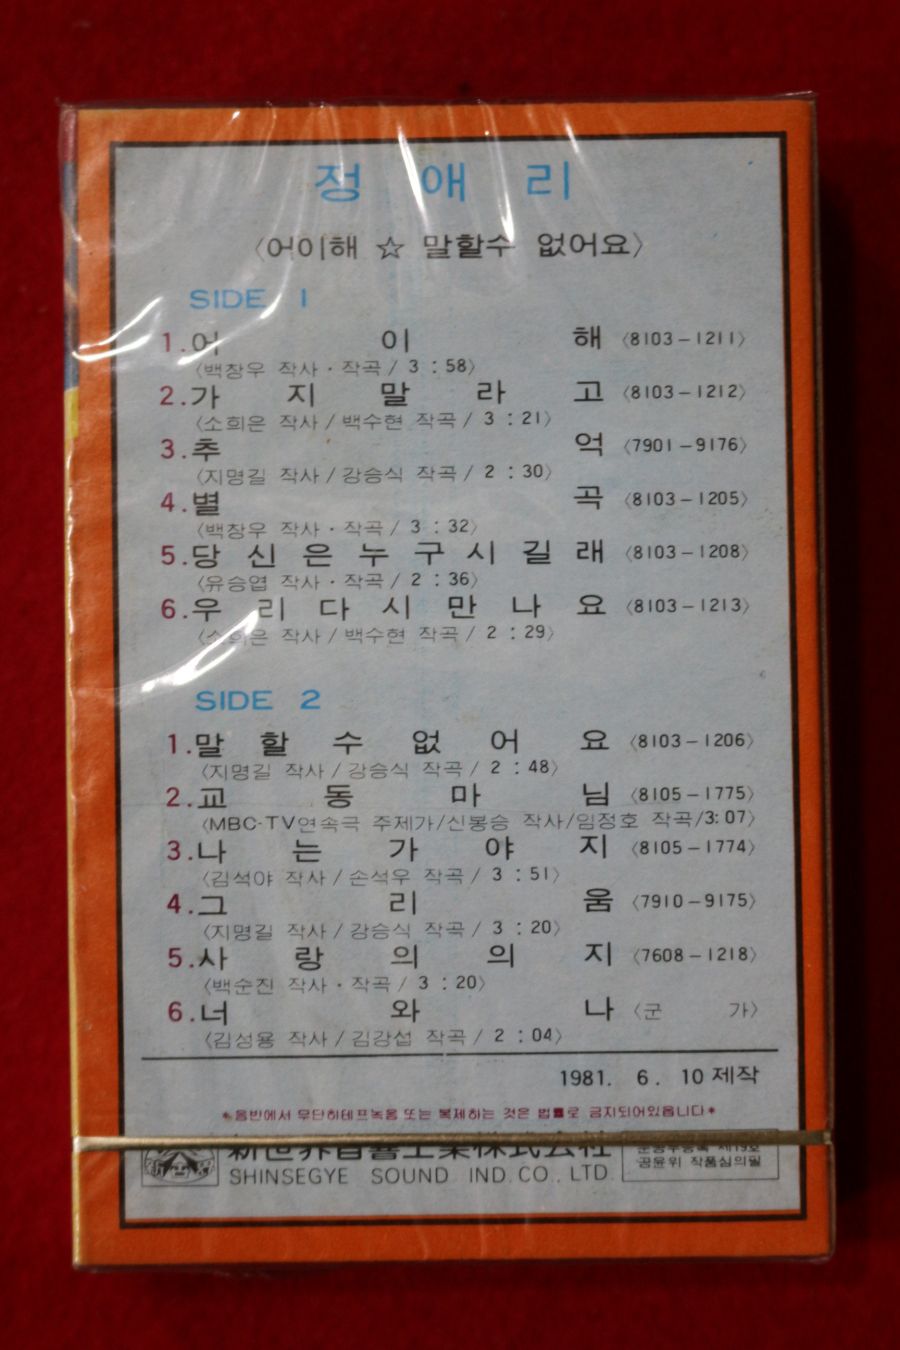 정 애 리
〈어이해 ☆ 말할수 없어요〉
SIDE 1
1. 어 이 해 〈8103-1211〉
〈백창우 작사·작곡/3:58〉
2. 가 지 말 라 고 〈8103-1212〉
〈소희은 작사/백수현 작곡/3:21〉
3. 추 억 〈7901-9176〉
〈지명길 작사/강승식 작곡/2:30〉
4. 별 곡 〈8103-1205〉
〈백창우 작사·작곡/3:32〉
5. 당 신 은 누 구 시 길 래 〈8103-1208〉
〈유승엽 작사·작곡/2:36〉
6. 우 리 다 시 만 나 요 〈8103-1213〉
〈소희은 작사/백수현 작곡/2:29〉
SIDE 2
1. 말 할 수 없 어 요 〈8103-1206〉
〈지명길 작사/강승식 작곡/2:48〉
2. 교 동 마 님 〈8105-1775〉
〈MBC·TV연속극 주제가/신봉승 작사/임정호 작곡/3:07〉
3. 나 는 가 야 지 〈8105-1774〉
〈김석야 작사/손석우 작곡/3:51〉
4. 그 리 움 〈7910-9175〉
〈지명길 작사/강승식 작곡/3:20〉
5. 사 랑 의 의 지 〈7608-1218〉
〈백순진 작사·작곡/3:20〉
6. 너 와 나 〈군 가〉
〈김성용 작사/김강섭 작곡/2:04〉
1981. 6. 10 제작
*음반에서 무단히테프녹음 또는 복제하는 것은 법률로 금지되어있읍니다*
新世界音響工業株式会社
SHINSEGYE SOUND IND. CO., LTD.
공윤위 작품심의필